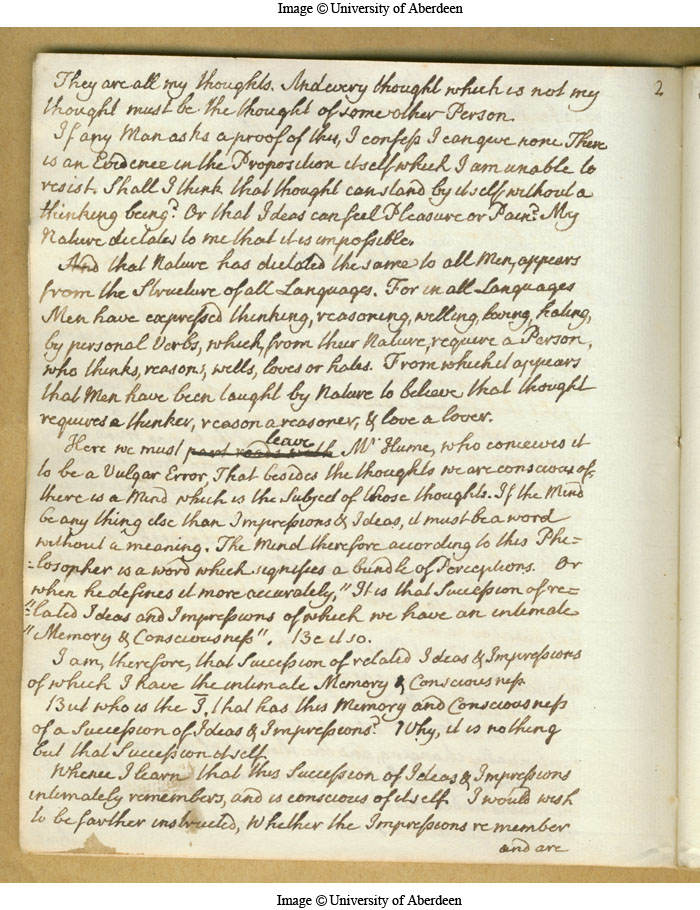 Image © University of Aberdeen
2
They are all my thoughts. And every thought which is not my
thought must be the thought of some other Person.
If any Man asks a proof of this, I confess I can give none There
is an Evidence in the Proposition itself which I am unable to
resist. Shall I think that thought can stand by itself without a
thinking being? Or that Ideas can feel Pleasure or Pain? My
Nature dictates to me that it is impossible.
And that Nature has dictated the same to all Men, appears
from the Structure of all Languages. For in all Languages
Men have expressed thinking, reasoning, willing, loving, hating,
by personal Verbs, which, from their Nature, require a Person,
who thinks, reasons, wills, loves or hates. From which it appears
that Men have been taught by Nature to believe that thought
requires a thinker, reason a reasoner, & love a lover.
Here we must leave Mr Hume, who conceives it
to be a Vulgar Error, That besides the thoughts we are conscious of,
there is a Mind which is the Subject of those thoughts. If the Mind
be any thing else than Impressions & Ideas, it must be a word
without a meaning. The Mind therefore according to this Phi=
=losopher is a word which signifies a bundle of Perceptions. Or
when he defines it more accurately, "It is that Succession of re=
"=lated Ideas and Impressions of which we have an intimate
"Memory & Consciousness". Be it so.
I am, therefore, that Succession of related Ideas & Impressions
of which I have the intimate Memory & Consciousness
But who is the I, that has this Memory and Consciousness
of a Succession of Ideas & Impressions? Why, it is nothing
but that Succession itself
Whence I learn that this Succession of Ideas & Impressions
intimately remembers, and is conscious of itself I would wish
to be farther instructed, Whether the Impressions remember
and are
Image © University of Aberdeen